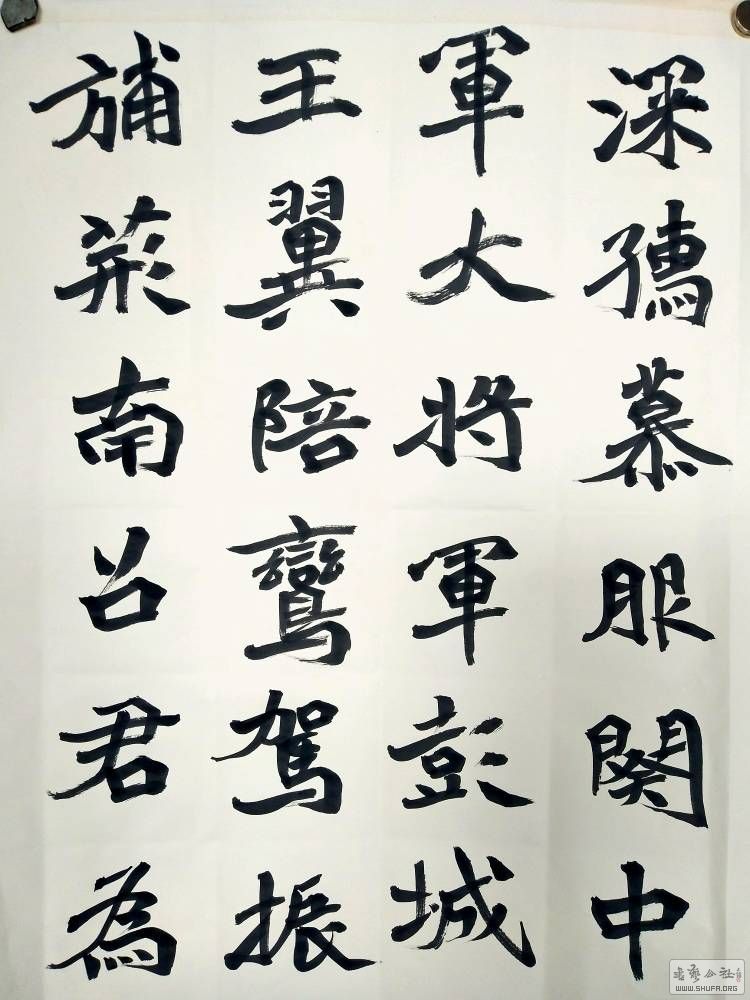 深孺慕服闋中
軍大将軍彭城
王翼陪鸞駕振
旆荊南召君為
求藝公社
WWW.SHUFA.ORG